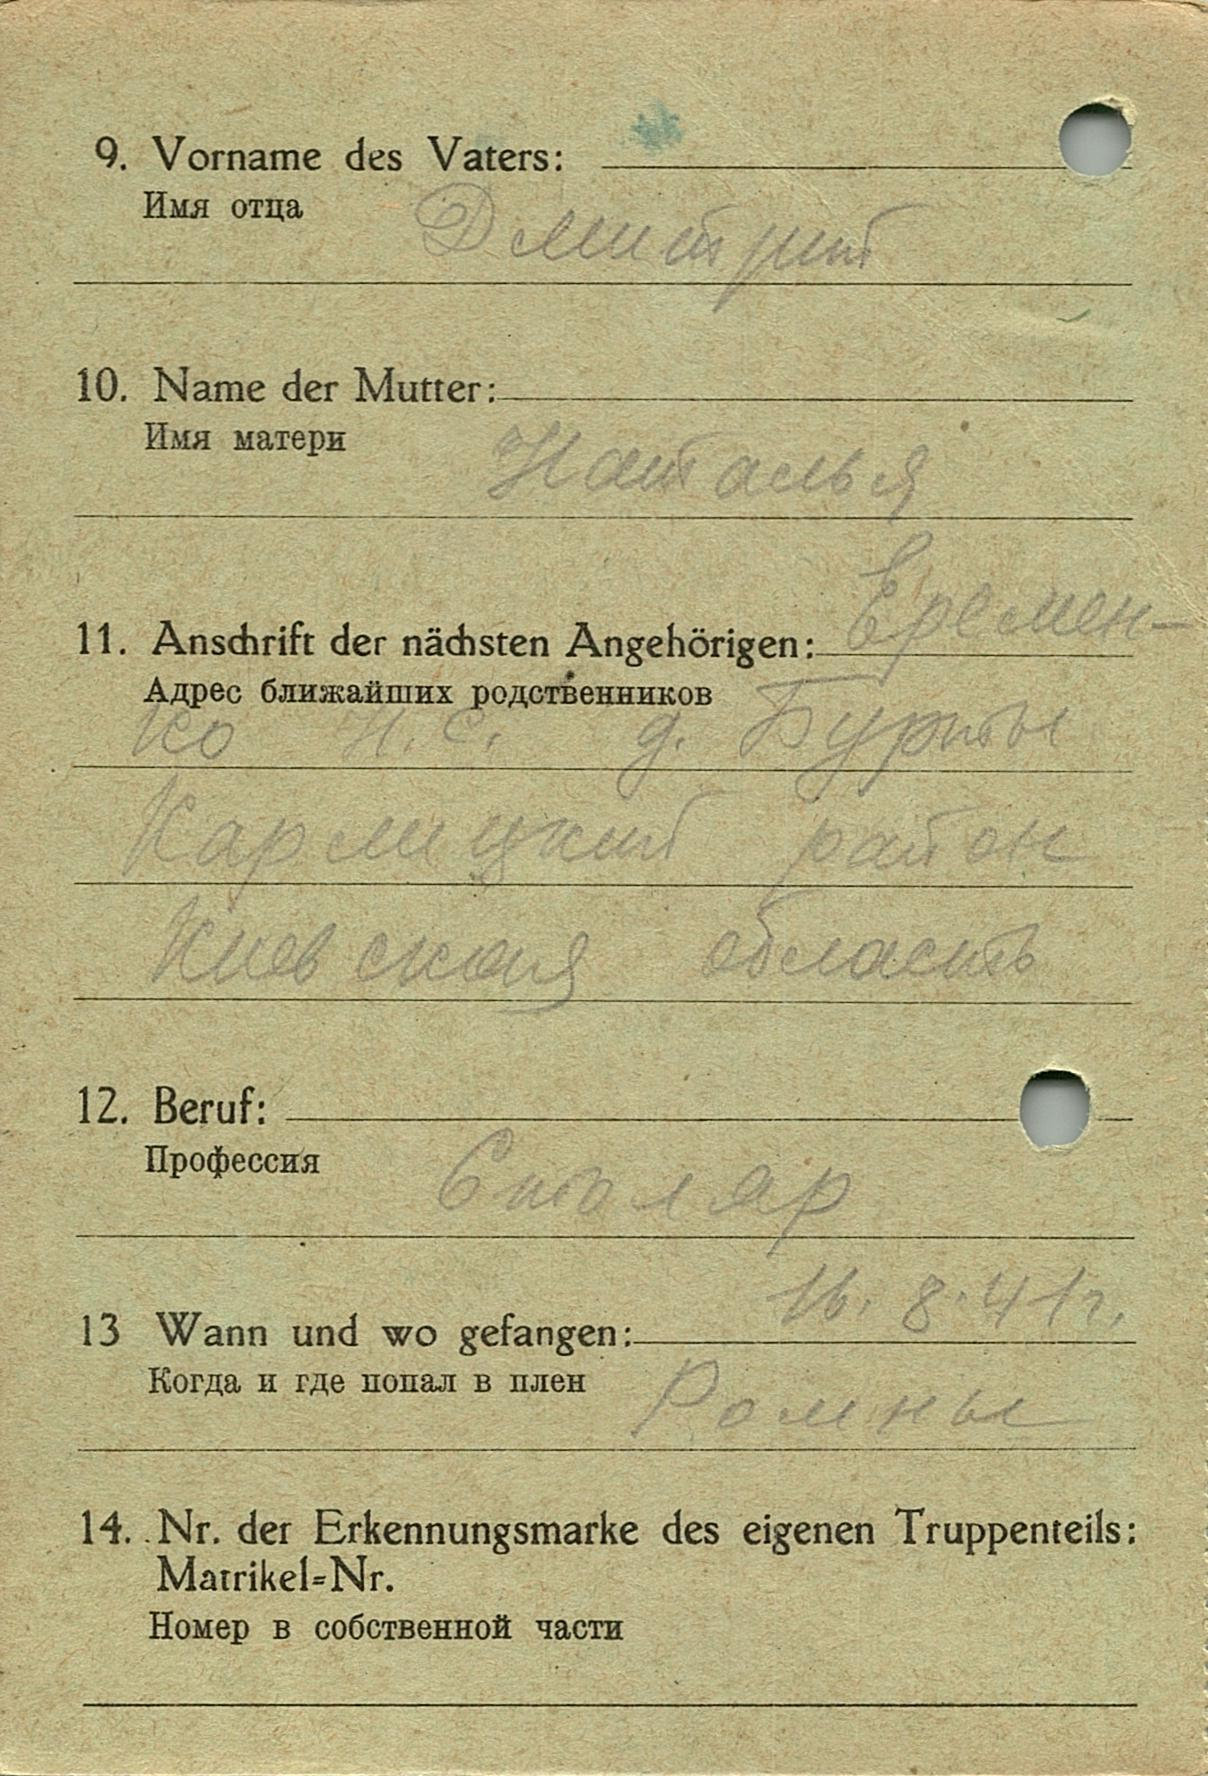 9. Vorname des Vaters:
Имя отца
Дмитрий
10. Name der Mutter:
Имя матери
Наталья
11. Anschrift der nächsten Angehörigen: Еремен-
Адрес ближайших родственников
ко Н. С. д. Бурты
Кармицкий район
Киевская область
12. Beruf:
Профессия
Столяр
13 Wann und wo gefangen: 16. 8. 41 г.
Когда и где попал в плен
Ромны
14. Nr. der Erkennungsmarke des eigenen Truppenteils:
Matrikel=Nr.
Номер в собственной части